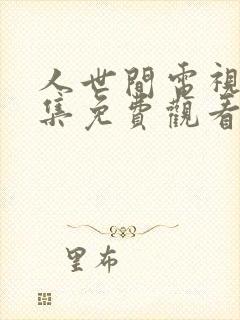 人世間電視
集免費觀看
里布